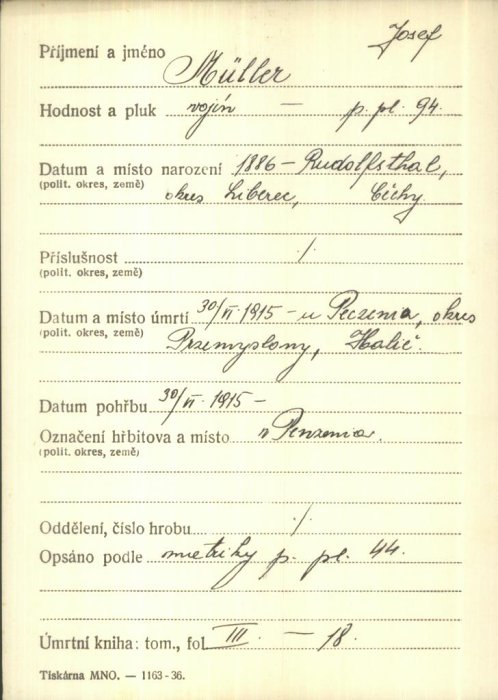 Josef
Příjmení a jméno Müller
Hodnost a pluk vojín — p. pl. 94.
Datum a místo narození 1886 – Rudolfsthal,
(polit. okres, země) okres Liberec, Čechy.
Příslušnost ·/.
(polit. okres, země)
Datum a místo úmrtí 30/VI. 1915 – u Peczenia, okres
(polit. okres, země) Przemyslony, Halič.
Datum pohřbu 30/VI. 1915 –
Označení hřbitova a místo v Penzenia.
(polit. okres, země)
Oddělení, číslo hrobu ·/.
Opsáno podle metriky p. pl. 44.
Úmrtní kniha: tom., fol. III. — 18.
Tiskárna MNO. — 1163-36.